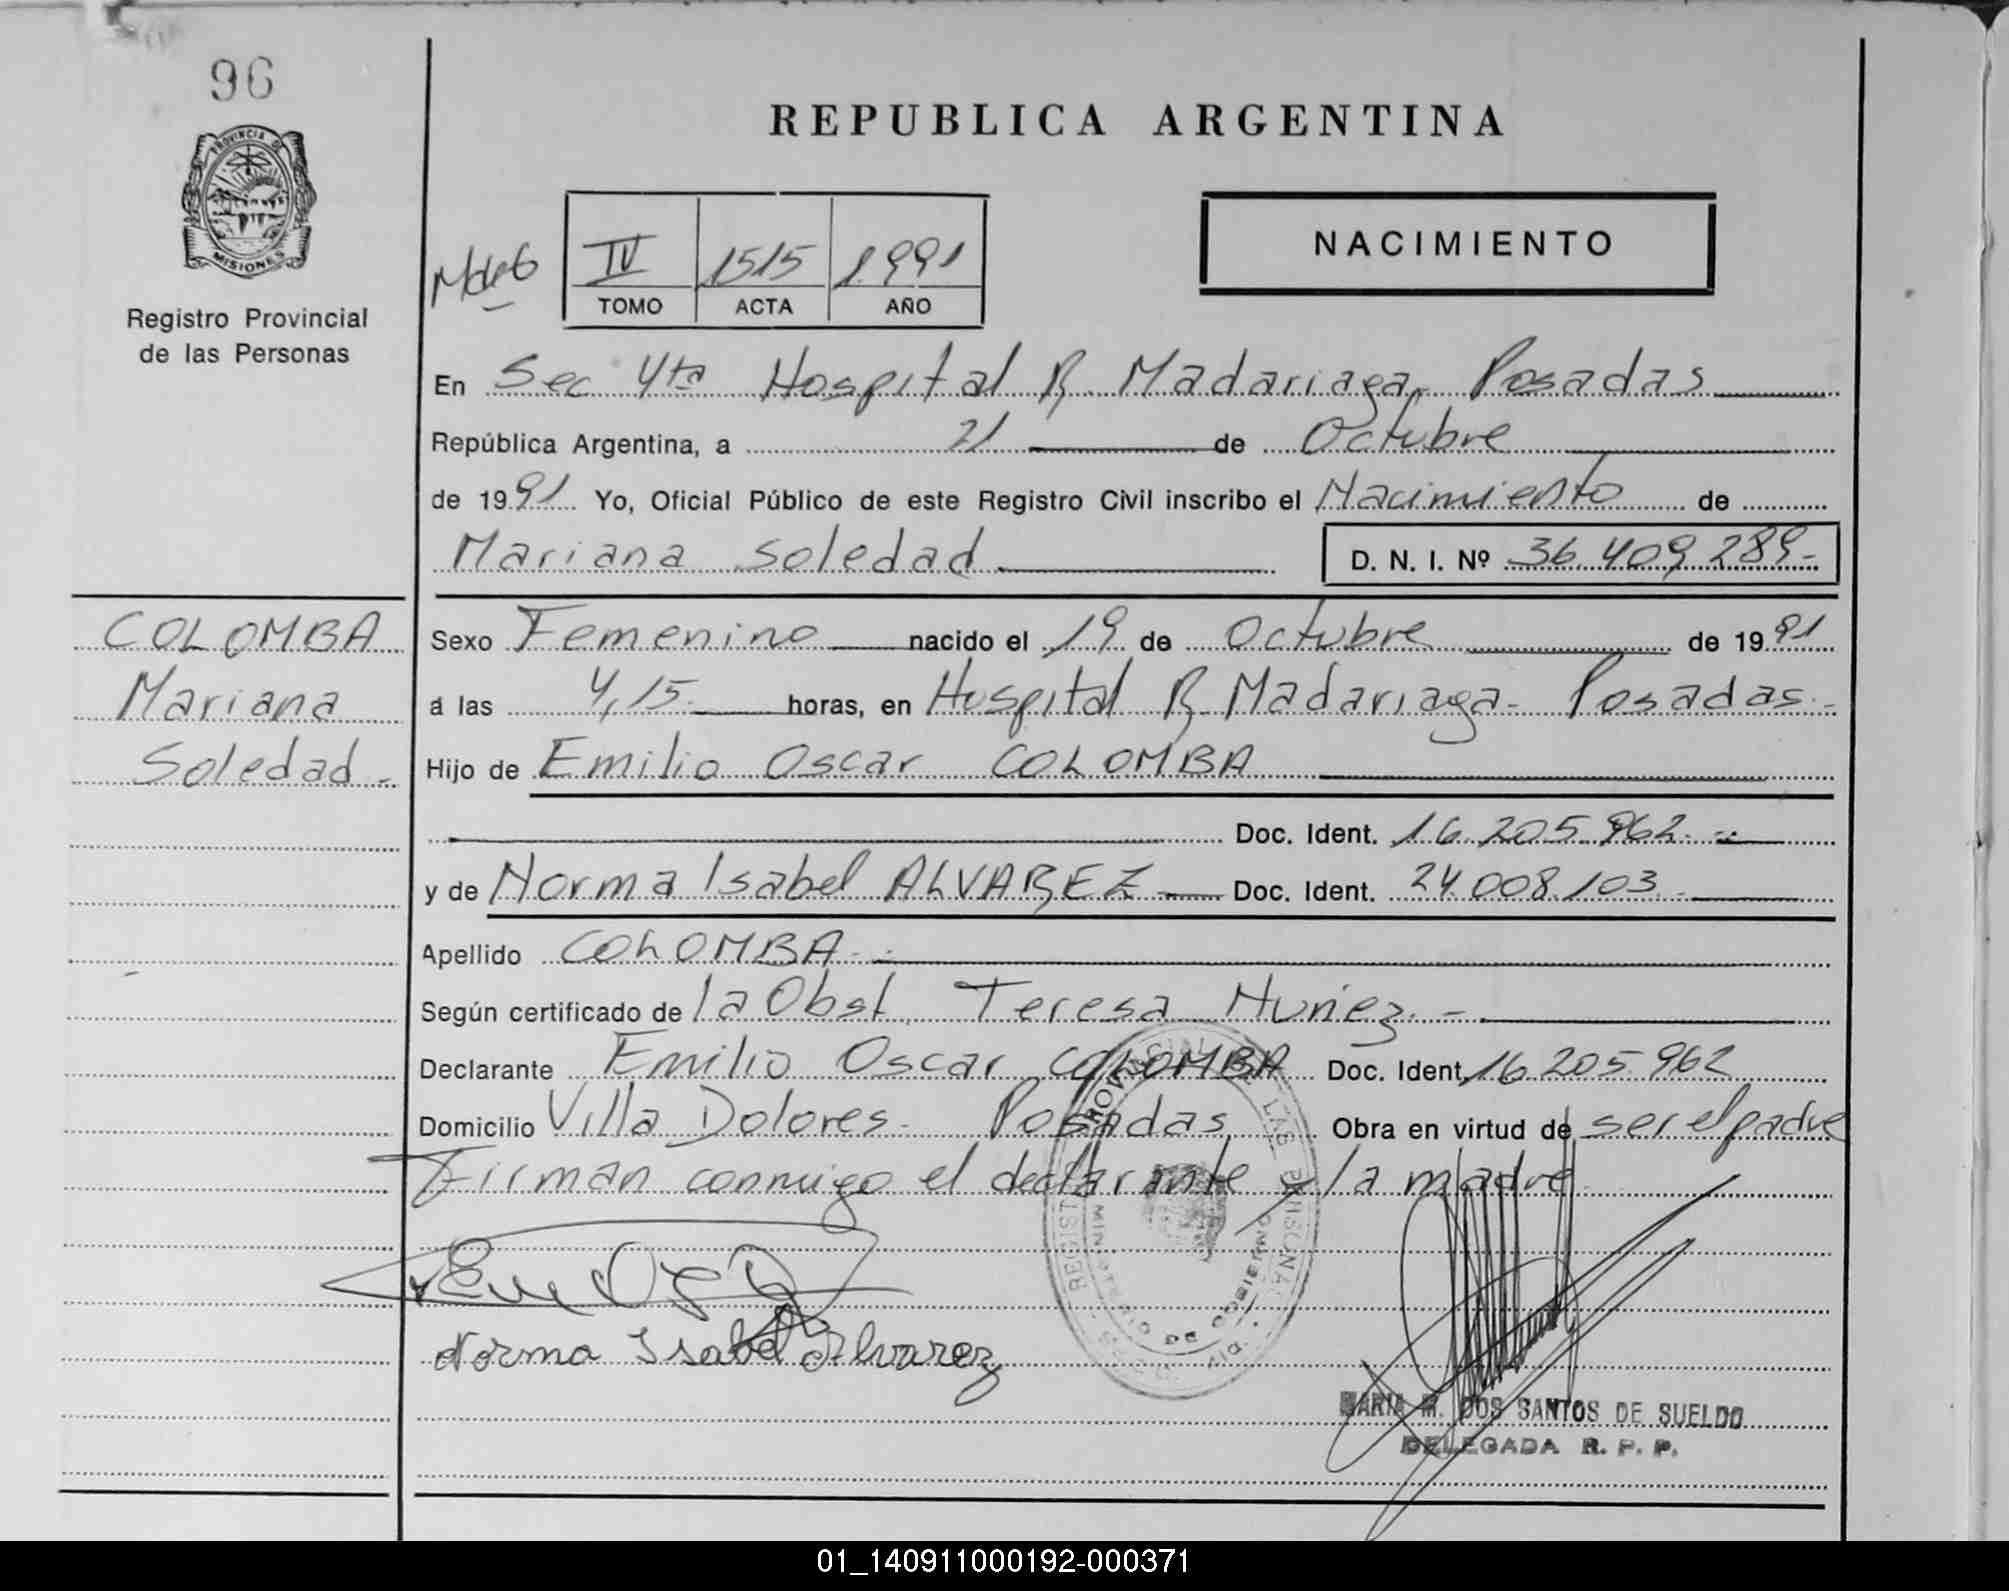 96
PROVINCIA DE
MISIONES
Registro Provincial
de las Personas
REPUBLICA ARGENTINA
NACIMIENTO
IV 1515 1.991
TOMO ACTA AÑO
En Sec 4ta Hospital R. Madariaga, Posadas
República Argentina, a 21 de Octubre
de 1991 Yo, Oficial Público de este Registro Civil inscribo el Nacimiento de
Mariana Soledad D. N. I. Nº 36.409.289-
COLOMBA
Mariana
Soledad-
Sexo Femenino nacido el 19 de Octubre de 1991
á las 4,15 horas, en Hospital R. Madariaga- Posadas-
Hijo de Emilio Oscar COLOMBA
Doc. Ident. 16.205.962-
y de Norma Isabel ALVAREZ Doc. Ident. 24.008.103
Apellido COLOMBA-
Según certificado de la Obst. Teresa Nuñez-
Declarante Emilio Oscar COLOMBA Doc. Ident. 16.205.962
Domicilio Villa Dolores- Posadas Obra en virtud de ser el padre
Firman conmigo el declarante y la madre
Norma Isabel Alvarez
MINISTERIO DE GOBIERNO
MARIA M. DOS SANTOS DE SUELDO
DELEGADA R. P. P.
01_140911000192-000371